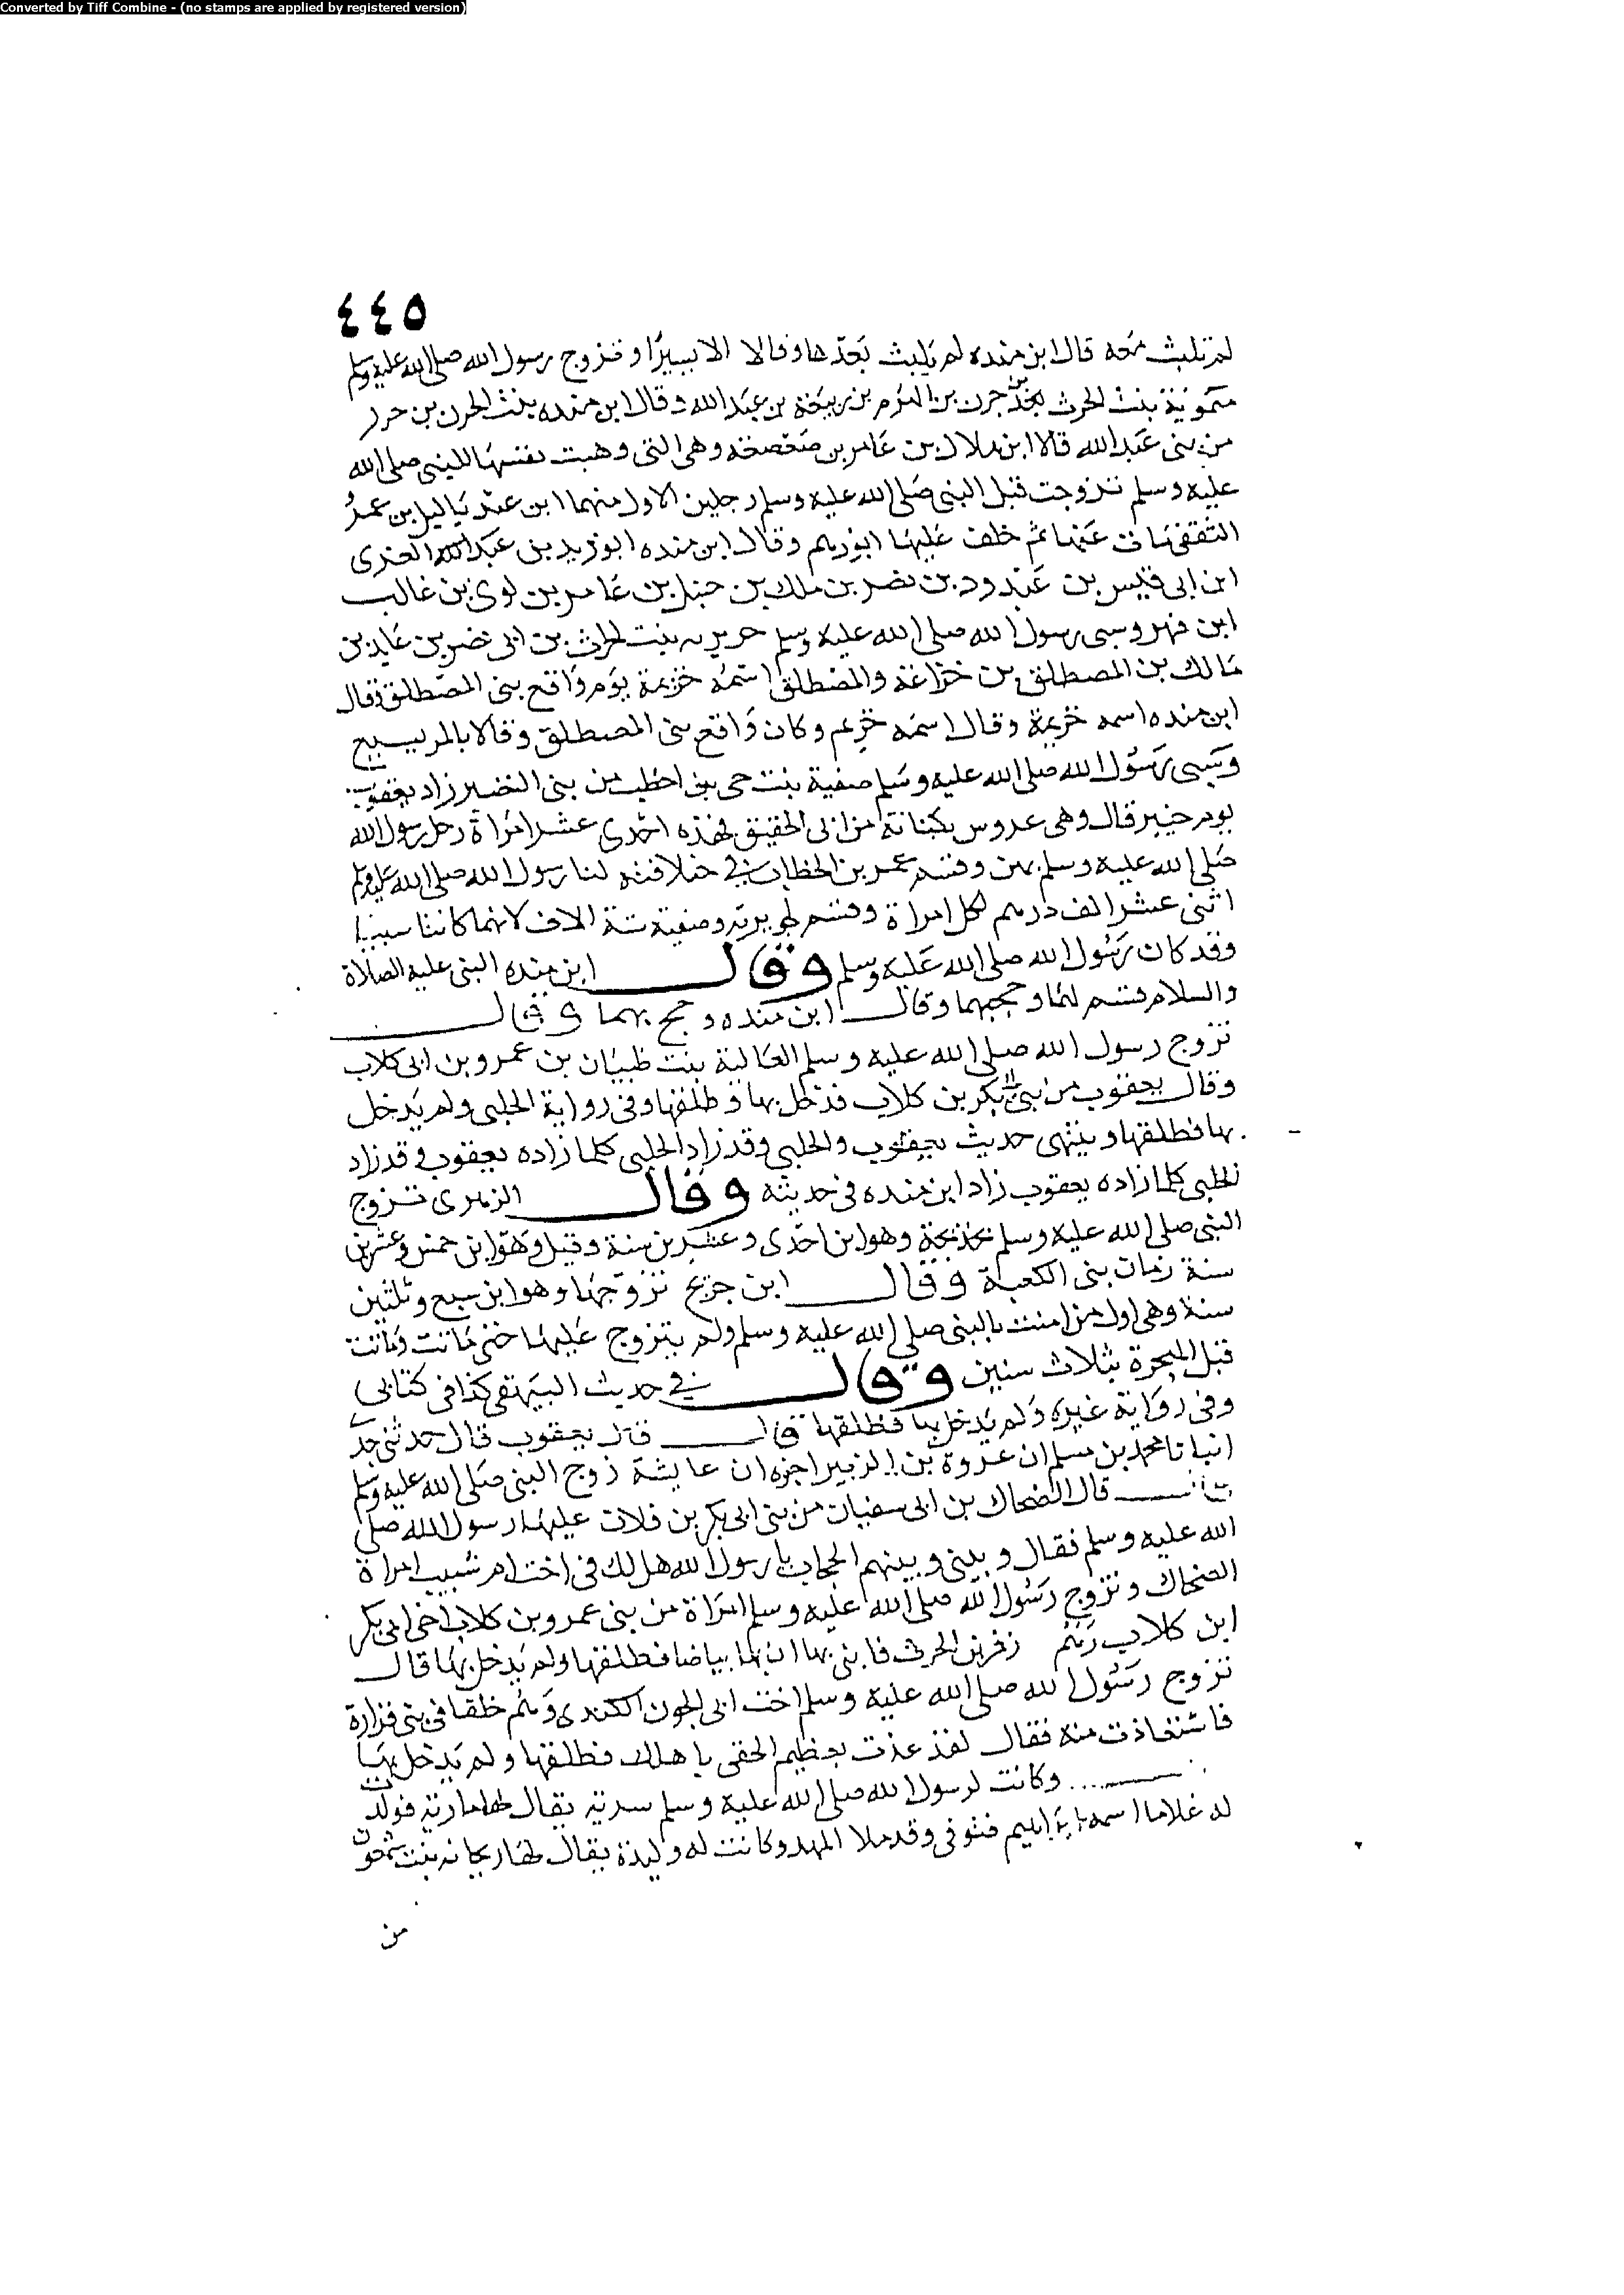 Converted by Tiff Combine - (no stamps are applied by registered version)
٤٤٥
لم تلبث معه قال ابن منده لم يلبث بعدها وقالا الا يسيرا وتزوج رسول الله صلى الله عليه وسلم
ميمونة بنت الحرث بن حزن بن الهزم بن ربيعة بن عبد الله وقال ابن منده بنت الحرث بن حزن
من بني عبد الله قالا ابن هلال بن عامر بن صعصعة وهي التي وهبت نفسها للنبي صلى الله
عليه وسلم تزوجت قبل النبي صلى الله عليه وسلم رجلين الاول منهما ابن عبد ياليل بن عمرو
الثقفي مات عنها ثم خلف عليها ابو رهم وقال ابن منده ابو زيد بن عبد الله العزى
ابن ابي قيس بن عبد ود بن نصر بن ملك بن حنبل بن عامر بن لوي بن غالب
ابن فهر وسبى رسول الله صلى الله عليه وسلم جويريه بنت الحرث بن ابي ضر بن عايد بن
مالك بن المصطلق من خزاعة والمصطلق اسمه خزيمة يوم واقع بني المصطلق وقال
ابن منده اسمه خزيمة وقال اسمه خزيم وكان واقع بني المصطلق وقالا بالمريسيع
وسبى رسول الله صلى الله عليه وسلم صفية بنت حي بن اخطب من بني النضير زاد يعقوب
يوم خيبر قال وهي عروس بكنانة بن ابي الحقيق فهذه احدى عشر امراة دخل رسول الله
صلى الله عليه وسلم بهن وقسم عمر بن الخطاب في خلافته لنسا رسول الله صلى الله عليه وسلم
اثني عشر الف درهم لكل امراة وقسم لجويرية وصفية ستة الاف لانهما كانتا سبيا
وقد كان رسول الله صلى الله عليه وسلم وقال ابن منده النبي عليه الصلاة
والسلام قسم لهما وحجبهما وقال ابن منده وحج بهما وقال
تزوج رسول الله صلى الله عليه وسلم العالية بنت ظبيان بن عمرو بن ابي كلاب
وقال يعقوب من بني بكر بن كلاب فدخل بها وطلقها وفي رواية الحلبي ولم يدخل
بها فطلقها وينتهي حديث يعقوب والحلبي وقد زاد الحلبي كلما زاده يعقوب وقد زاد
الحلبي كلما زاده يعقوب زاد ابن منده في حديثه وقال الزهري تزوج
النبي صلى الله عليه وسلم خديجة وهو ابن احدى وعشرين سنة وقيل وهو ابن خمس وعشرين
سنة زمان بني الكعبة وقال ابن جريج تزوجها وهو ابن سبع وثلثين
سنة وهي اول من امنت بالنبي صلى الله عليه وسلم ولم يتزوج عليها حتى ماتت وماتت
قبل الهجرة بثلاث سنين وقال في حديث البيهقي كذا في كتابي
وفي رواية غيره ولم يدخل بها فطلقها قال قال يعقوب قال حدثني جد
انبانا محمد بن مسلم ان عروة بن الزبير اخبره ان عايشة زوج النبي صلى الله عليه وسلم
قال الضحاك بن ابي سفيان من بني ابي بكر بن فلات عليها رسول الله صلى
الله عليه وسلم فقال وبيني وبينهم الحجاب يا رسول الله هل لك في اخت ام شبيب امراة
الضحاك وتزوج رسول الله صلى الله عليه وسلم امراة من بني عمرو بن كلاب اخي ابي بكر
ابن كلاب رهم زفر بن الحرث فابني بها ان بها بياضا فطلقها ولم يدخل بها قال
تزوج رسول الله صلى الله عليه وسلم اخت ابي الجون الكندي وهم خلفا في بني فزارة
فاستعاذت منه فقال لقد عذت بعظيم الحقي باهلك فطلقها ولم يدخل بها
وكانت لرسول الله صلى الله عليه وسلم سرية يقال لها مارية فولدت
له غلاما اسمه ابراهيم فتوفي وقد ملا المهد وكانت له وليدة يقال لها ريحانه بنت شمعون
من